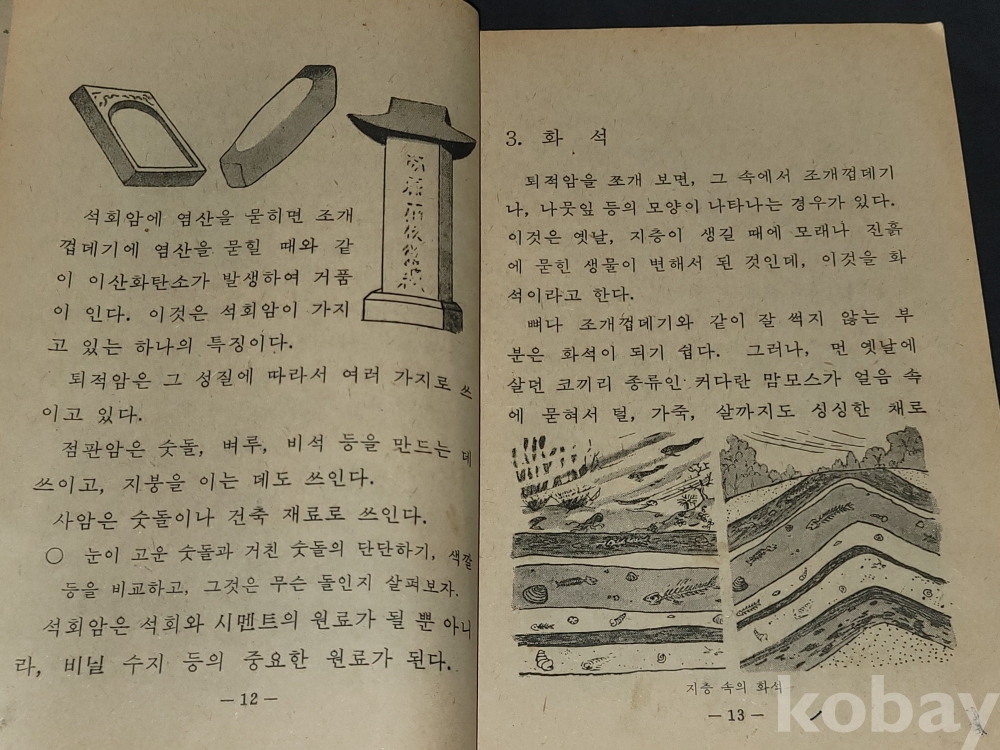 석회암에 염산을 묻히면 조개
껍데기에 염산을 묻힐 때와 같
이 이산화탄소가 발생하여 거품
이 인다. 이것은 석회암이 가지
고 있는 하나의 특징이다.
퇴적암은 그 성질에 따라서 여러 가지로 쓰
이고 있다.
점판암은 숫돌, 벼루, 비석 등을 만드는 데
쓰이고, 지붕을 이는 데도 쓰인다.
사암은 숫돌이나 건축 재료로 쓰인다.
○ 눈이 고운 숫돌과 거친 숫돌의 단단하기, 색깔
등을 비교하고, 그것은 무슨 돌인지 살펴보자.
석회암은 석회와 시멘트의 원료가 될 뿐 아니
라, 비닐 수지 등의 중요한 원료가 된다.
— 12 —
3. 화 석
퇴적암을 쪼개 보면, 그 속에서 조개껍데기
나, 나뭇잎 등의 모양이 나타나는 경우가 있다.
이것은 옛날, 지층이 생길 때에 모래나 진흙
에 묻힌 생물이 변해서 된 것인데, 이것을 화
석이라고 한다.
뼈나 조개껍데기와 같이 잘 썩지 않는 부
분은 화석이 되기 쉽다. 그러나, 먼 옛날에
살던 코끼리 종류인 커다란 맘모스가 얼음 속
에 묻혀서 털, 가죽, 살까지도 싱싱한 채로
지층 속의 화석
— 13 —
kobay